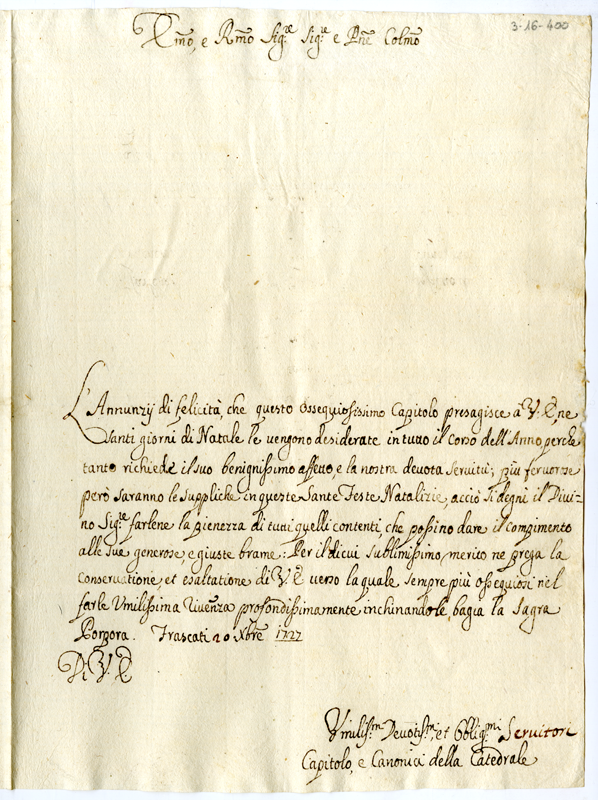 3-16-400
Em̃o, e Rm̃o Sig.re Sig.re e Pñe Colm̃o
L'Annunzij di felicità, che questo ossequiosissimo Capitolo presagisce à V. E. ne
Santi giorni di Natale le vengono desiderate in tutto il Corso dell'Anno, perche
tanto richiede il suo benignissimo affetto, e la nostra devota servitù; più fervorose
però saranno le suppliche in queste Sante Feste Natalizie, acciò si degni il Divi-
no Sig.re farlene la pienezza di tutti quelli contenti, che possino dare il compimento
alle sue generose, e giuste brame: Per il di cui sublimissimo merito ne prega la
Conservatione, et esaltatione di V. E. verso la quale sempre più ossequiosi nel
farle Umilissima riverẽnza profondissimamente inchinandole, bagia la Sagra
Porpora. Frascati 20 Xbre 1727
Di V. E.
Umiliss.mi Devotis.mi, et Obblig.mi Servitori
Capitolo, e Canonici della Catedrale